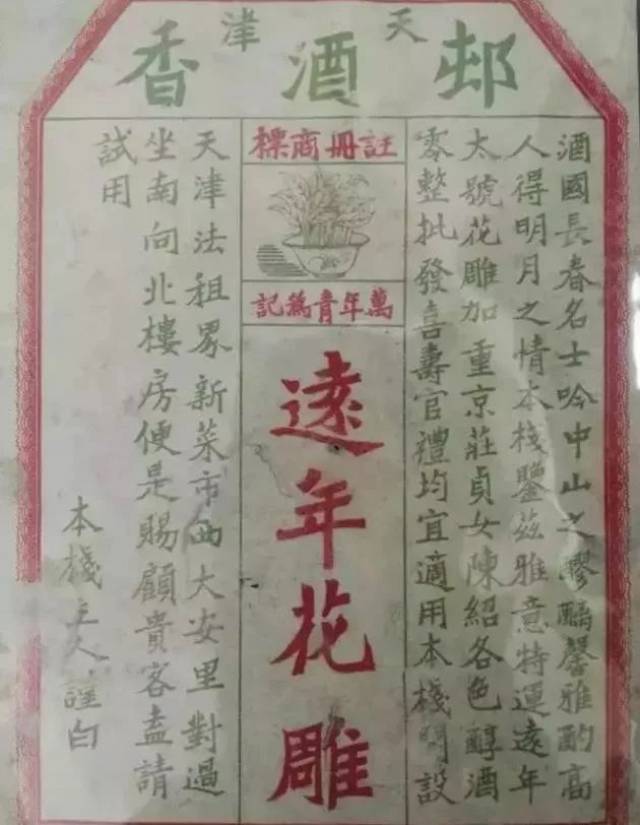 天津
邨酒香
酒國長春名士吟中山之醪馨雅酌高
人得明月之情本棧鑒茲雅意特運遠年
太號花雕加重京莊貞女陳紹各色醇酒
零整批發喜壽官禮均宜適用本棧開設
註冊商標
萬年青為記
遠年花雕
天津法租界新菜市西大安里對過
坐南向北樓房便是賜顧貴客盍請
試用
本棧主人謹白